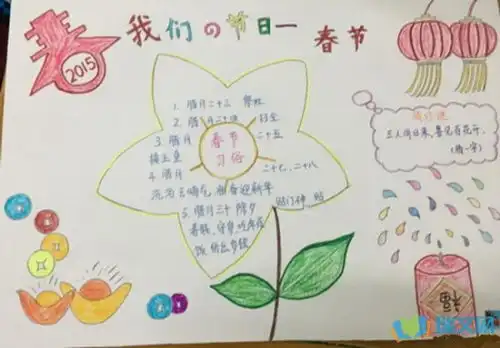 春
2015
我们の节日一 春节
1. 腊月二十三 祭灶
2. 腊月二十四 扫尘
3. 腊月 二十五
接玉皇
4. 腊月 二十七、二十八
洗浴
春节
习俗
贴门神 贴
5. 腊月三十 除夕
春联、守岁、吃年夜
饭
猜灯谜
三人同日来,喜见百花开。
(猜一字)
福